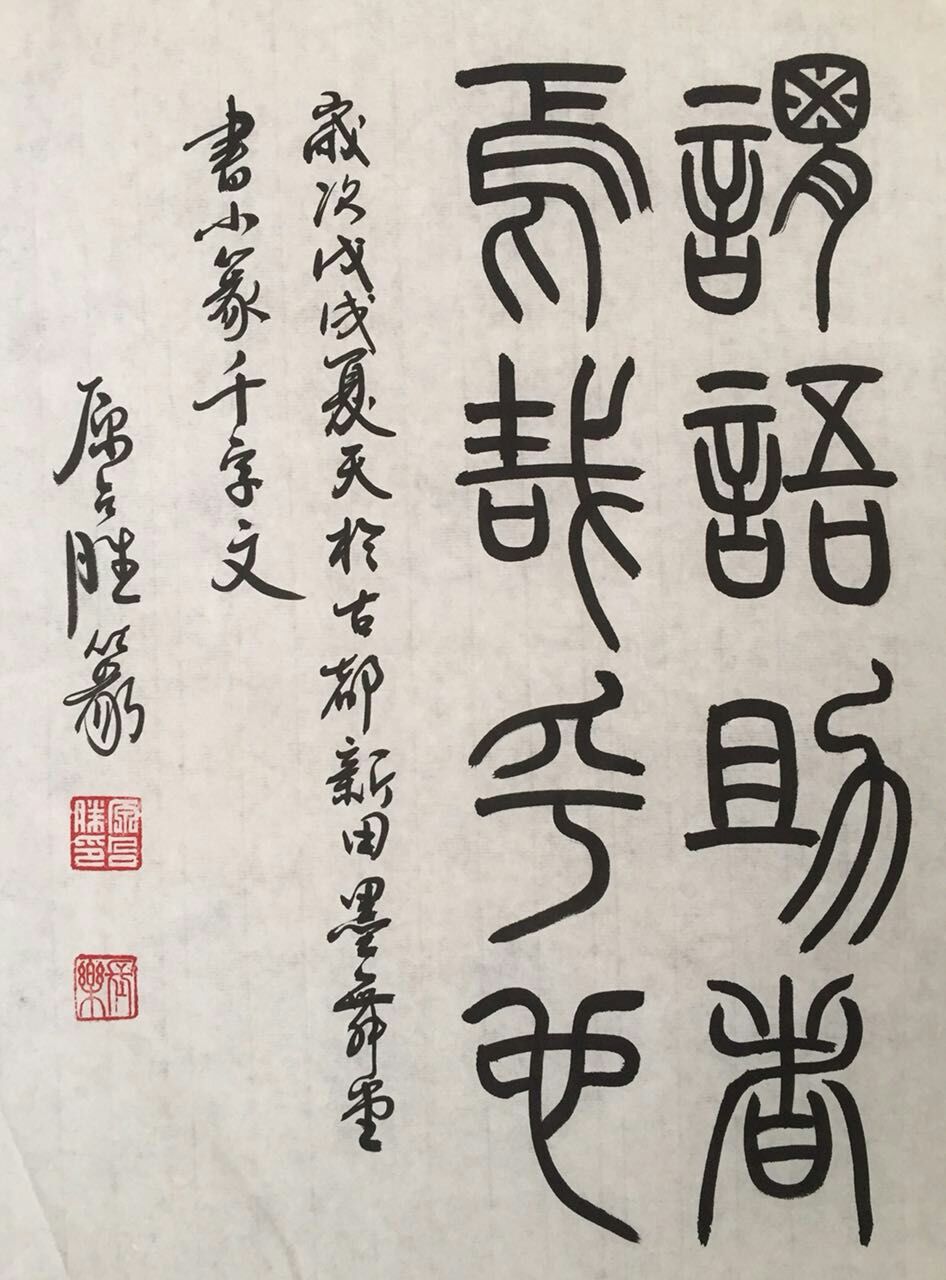 謂語助者
焉哉乎也
歲次戊戌夏天於古都新田墨舞堂
書小篆千字文
原吉勝篆